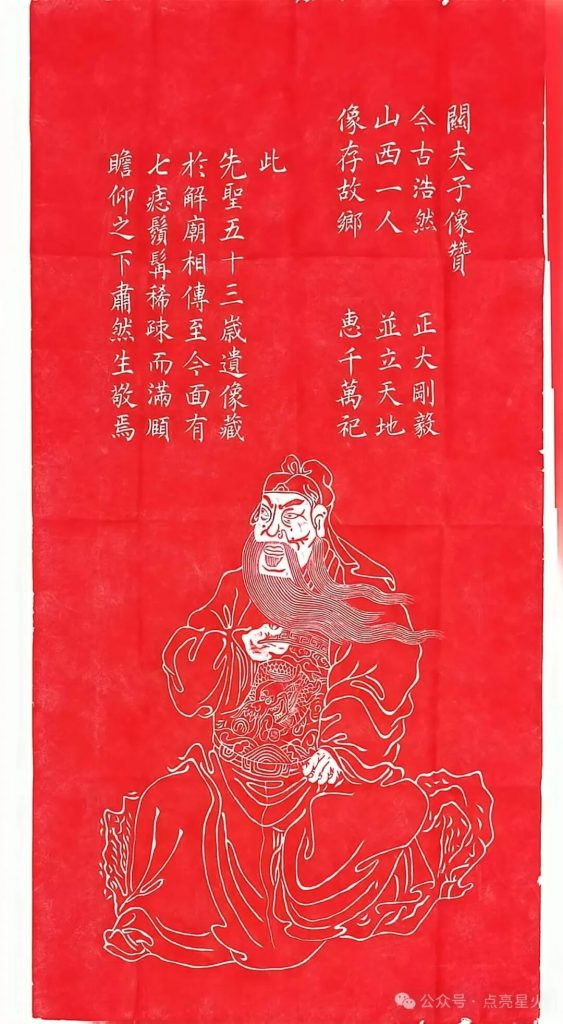 關夫子像贊
今古浩然　正大剛毅
山西一人　並立天地
像存故鄉　惠千萬祀
此
先聖五十三歲遺像藏
於解廟相傳至今面有
七痣鬚髯稀疎而滿頤
瞻仰之下肅然生敬焉
公众号 · 点亮星火